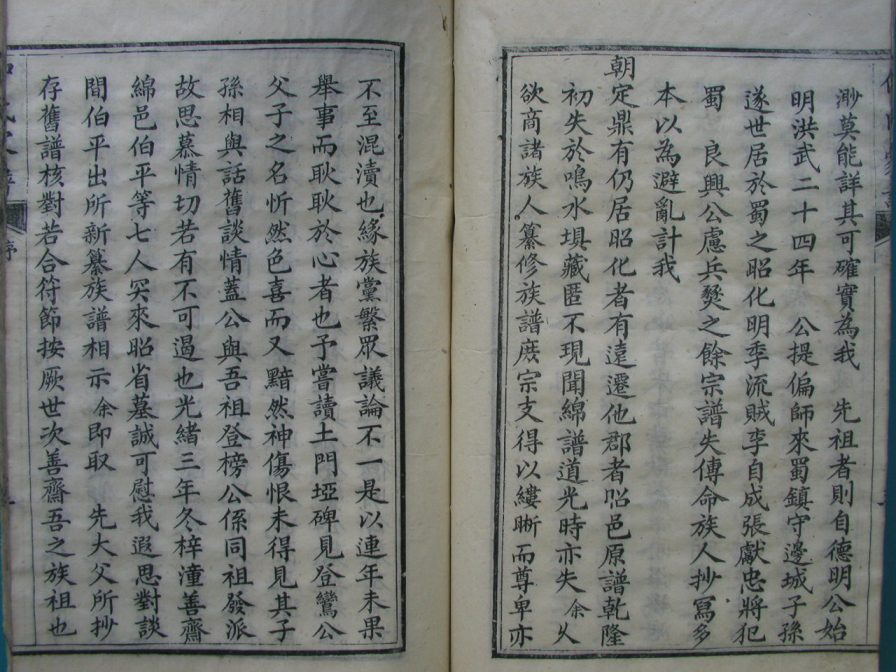 渺莫能詳其可確實為我　先祖者則自德明公始
明洪武二十四年　公提偏師來蜀鎮守邊城子孫
遂世居於蜀之昭化明季流賊李自成張獻忠將犯
蜀　良興公慮兵燹之餘宗譜失傳命族人抄寫多
本以為避亂計我
朝定鼎有仍居昭化者有遠遷他郡者昭邑原譜乾隆
初失於鳴水埧藏匿不現聞綿譜道光時亦失余久
欲商諸族人纂修族譜庶宗支得以縷晰而尊卑亦
不至混瀆也緣族黨繁眾議論不一是以連年未果
舉事而耿耿於心者也予嘗讀土門埡碑見登鸞公
父子之名忻然色喜而又黯然神傷恨未得見其子
孫相與話舊談情蓋公與吾祖登榜公係同祖發派
故思慕情切若有不可遏也光緒三年冬梓潼善齋
綿邑伯平等七人突來昭省墓誠可慰我遐思對談
間伯平出所新纂族譜相示余即取　先大父所抄
存舊譜核對若合符節按厥世次善齋吾之族祖也
序